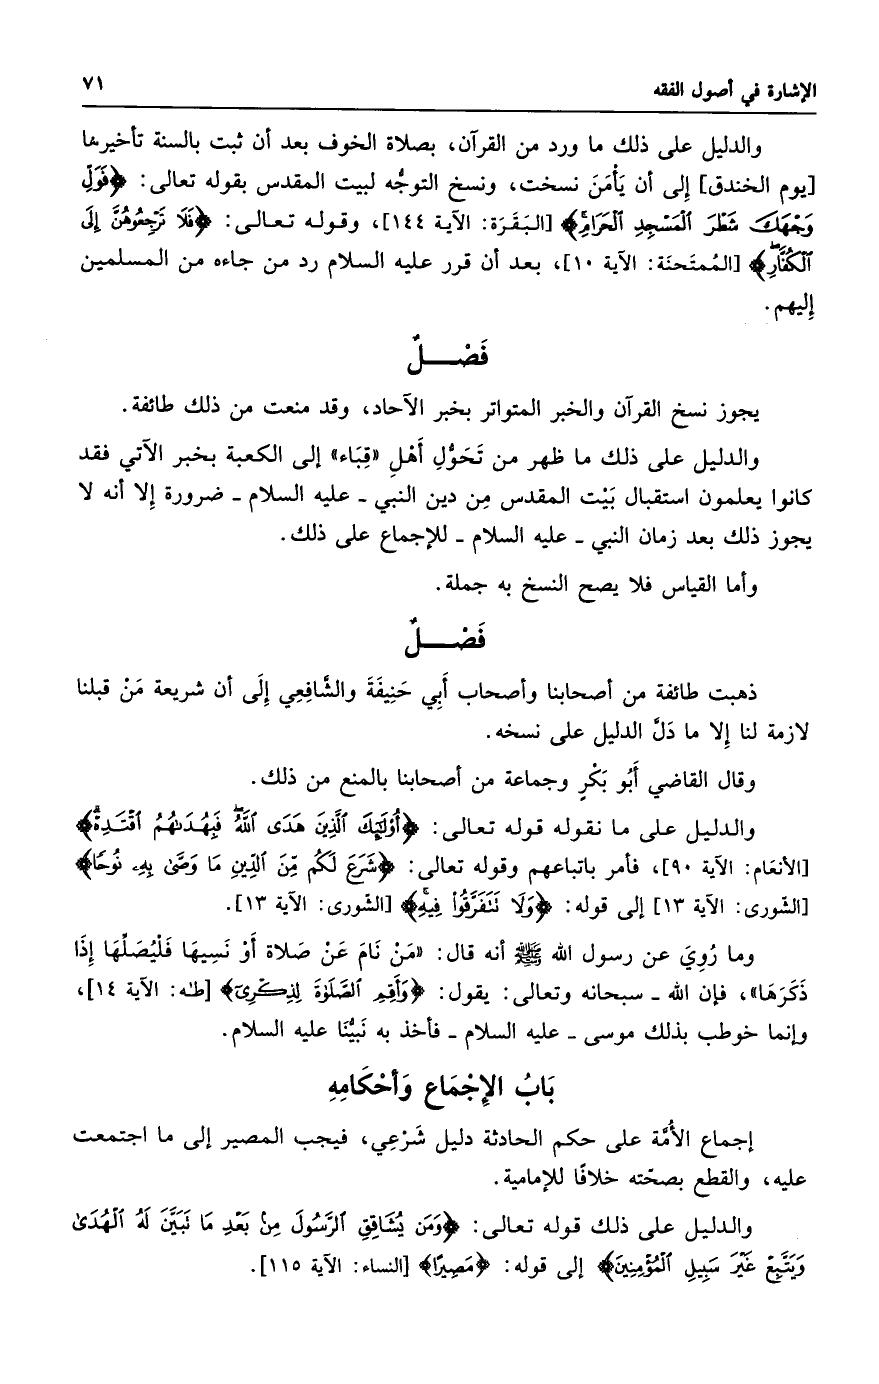 الإشارة في أصول الفقه ٧١
والدليل على ذلك ما ورد من القرآن، بصلاة الخوف بعد أن ثبت بالسنة تأخيرها
[يوم الخندق] إلى أن يَأْمَنَ نسخت، ونسخ التوجُّه لبيت المقدس بقوله تعالى: ﴿فَوَلِّ
وَجْهَكَ شَطْرَ ٱلْمَسْجِدِ ٱلْحَرَامِۚ﴾ [البَقَرَة: الآية ١٤٤]، وقوله تعالى: ﴿فَلَا تَرْجِعُوهُنَّ إِلَى
ٱلْكُفَّارِۖ﴾ [المُمتَحنَة: الآية ١٠]، بعد أن قرر عليه السلام رد من جاءه من المسلمين
إليهم.
فَصْـــلٌ
يجوز نسخ القرآن والخبر المتواتر بخبر الآحاد، وقد منعت من ذلك طائفة.
والدليل على ذلك ما ظهر من تَحَوُّل أَهْلِ «قِبَاء» إلى الكعبة بخبر الآتي فقد
كانوا يعلمون استقبال بَيْت المقدس مِن دين النبي ـ عليه السلام ـ ضرورة إلا أنه لا
يجوز ذلك بعد زمان النبي ـ عليه السلام ـ للإجماع على ذلك.
وأما القياس فلا يصح النسخ به جملة.
فَصْـــلٌ
ذهبت طائفة من أصحابنا وأصحاب أَبِي حَنِيفَةَ والشَّافِعِي إِلَى أن شريعة مَنْ قبلنا
لازمة لنا إلا ما دَلَّ الدليل على نسخه.
وقال القاضي أَبُو بَكْرٍ وجماعة من أصحابنا بالمنع من ذلك.
والدليل على ما نقوله قوله تعالى: ﴿أُوْلَٰٓئِكَ ٱلَّذِينَ هَدَى ٱللَّهُۖ فَبِهُدَىٰهُمُ ٱقْتَدِهْۗ﴾
[الأنعَام: الآية ٩٠]، فأمر باتباعهم وقوله تعالى: ﴿شَرَعَ لَكُم مِّنَ ٱلدِّينِ مَا وَصَّىٰ بِهِۦ نُوحًا﴾
[الشّورى: الآية ١٣] إلى قوله: ﴿وَلَا تَتَفَرَّقُواْ فِيهِۚ﴾ [الشّورى: الآية ١٣].
وما رُوِيَ عن رسول الله ﷺ أنه قال: «مَنْ نَامَ عَنْ صَلاة أَوْ نَسِيهَا فَلْيُصَلِّهَا إِذَا
ذَكَرَهَا»، فإن الله ـ سبحانه وتعالى: يقول: ﴿وَأَقِمِ ٱلصَّلَوٰةَ لِذِكْرِىٓ﴾ [طه: الآية ١٤]،
وإنما خوطب بذلك موسى ـ عليه السلام ـ فأخذ به نَبيُّنَا عليه السلام.
بَابُ الإِجْمَاعِ وَأَحْكَامِهِ
إجماع الأُمَّة على حكم الحادثة دليل شَرْعِي، فيجب المصير إلى ما اجتمعت
عليه، والقطع بصحّته خلافًا للإمامية.
والدليل على ذلك قوله تعالى: ﴿وَمَن يُشَاقِقِ ٱلرَّسُولَ مِنۢ بَعْدِ مَا تَبَيَّنَ لَهُ ٱلْهُدَىٰ
وَيَتَّبِعْ غَيْرَ سَبِيلِ ٱلْمُؤْمِنِينَ﴾ إلى قوله: ﴿مَصِيرًا﴾ [النساء: الآية ١١٥].